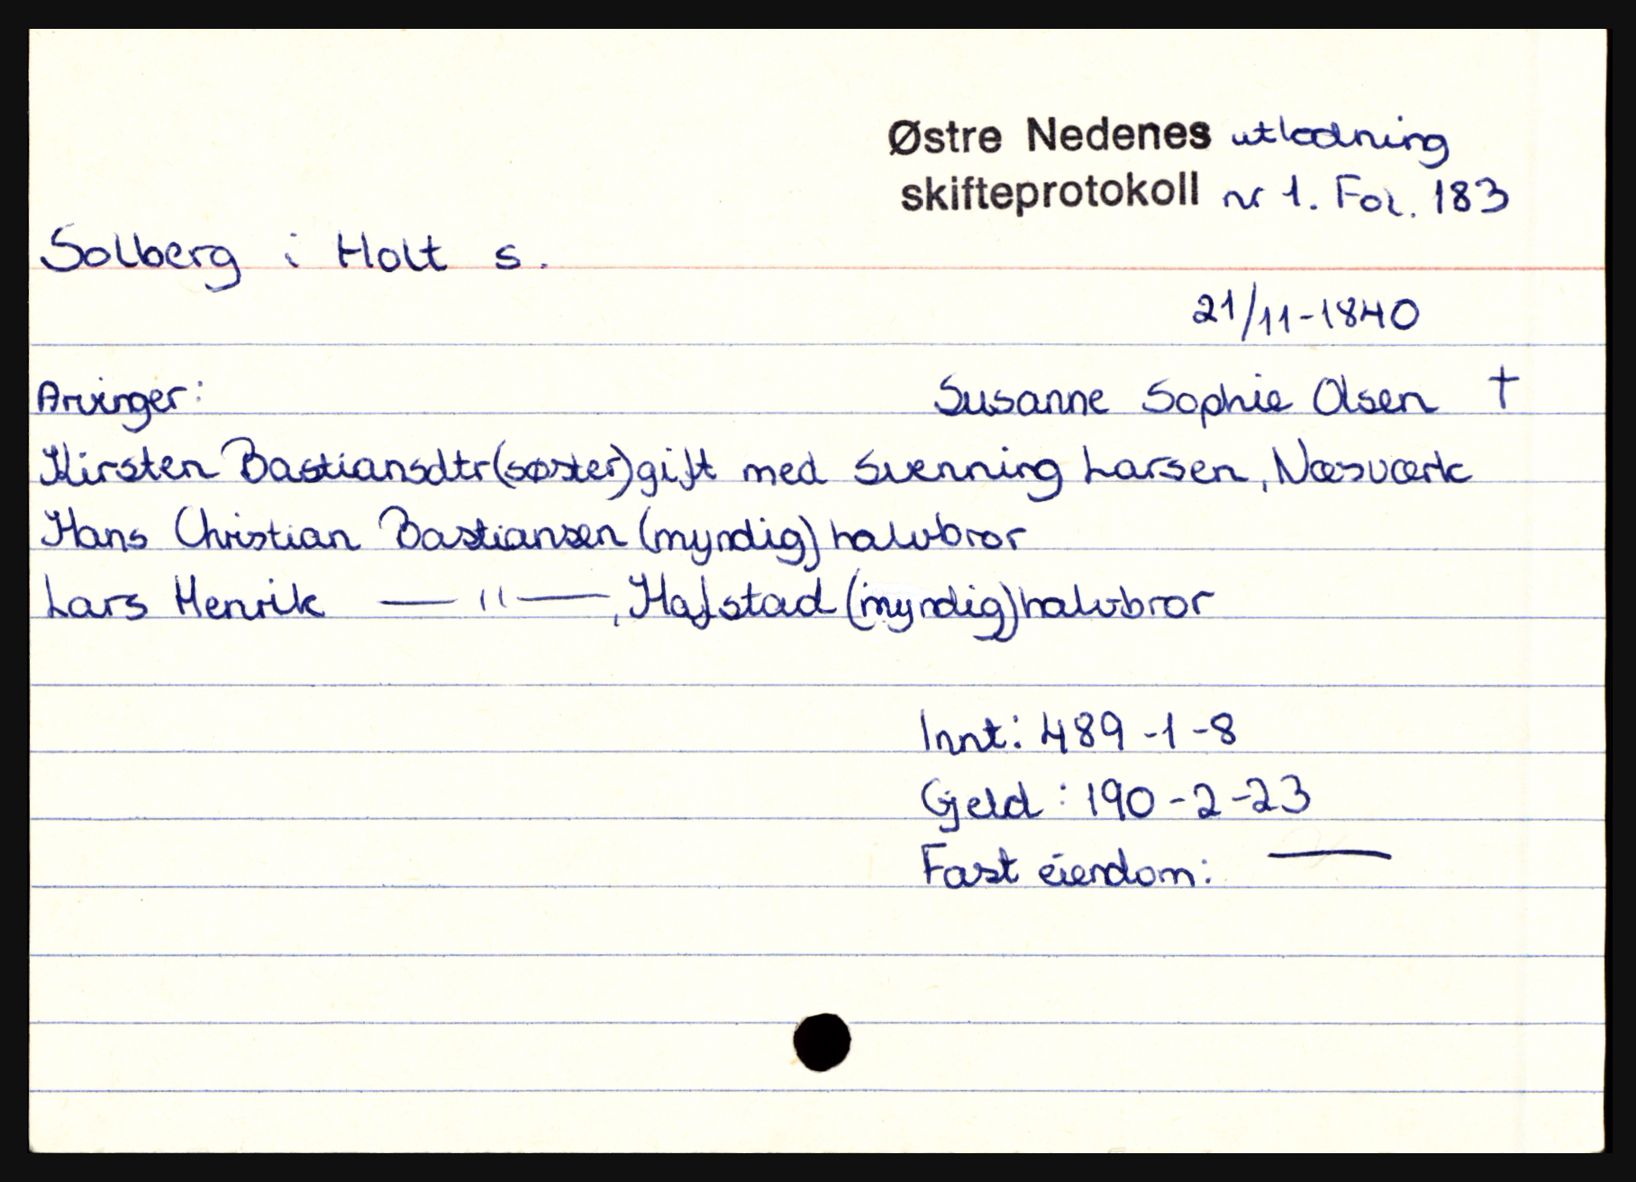 Østre Nedenes utlodning
skifteprotokoll nr 1. Fol. 183
Solberg i Holt s.
21/11-1840
Arvinger: Susanne Sophie Olsen †
Kirsten Bastiansdtr (søster) gift med Svenning Larsen, Næsværk
Hans Christian Bastiansen (myndig) halvbror
Lars Henrik — " —, Hafstad (myndig) halvbror
Innt: 489-1-8
Gjeld: 190-2-23
Fast eiendom: —